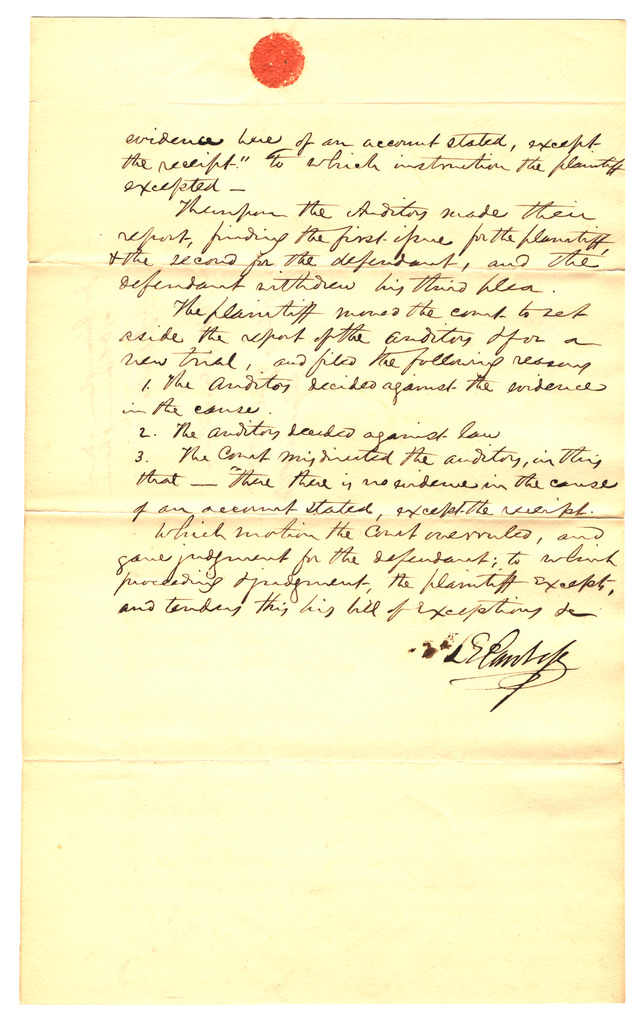 evidence here of an account stated, except
the receipt." To which instruction the plaintiff
excepted —
Thereupon the Auditors made their
report, finding the first issue for the plaintiff,
& the second for the defendant, and the
defendant withdrew his third plea.
The plaintiff moved the court to set
aside the report of the auditors & for a
new trial, and filed the following reasons
1. The Auditors decided against the evidence
in the cause.
2. The auditors decided against law
3. The Court misdirected the auditors, in this
that — "There there is no evidence in the cause
of an account stated, except the receipt.
Which motion the Court overruled, and
gave judgment for the defendant; to which
proceeding & judgment, the plaintiff excepts,
and tenders this his bill of Exceptions &c